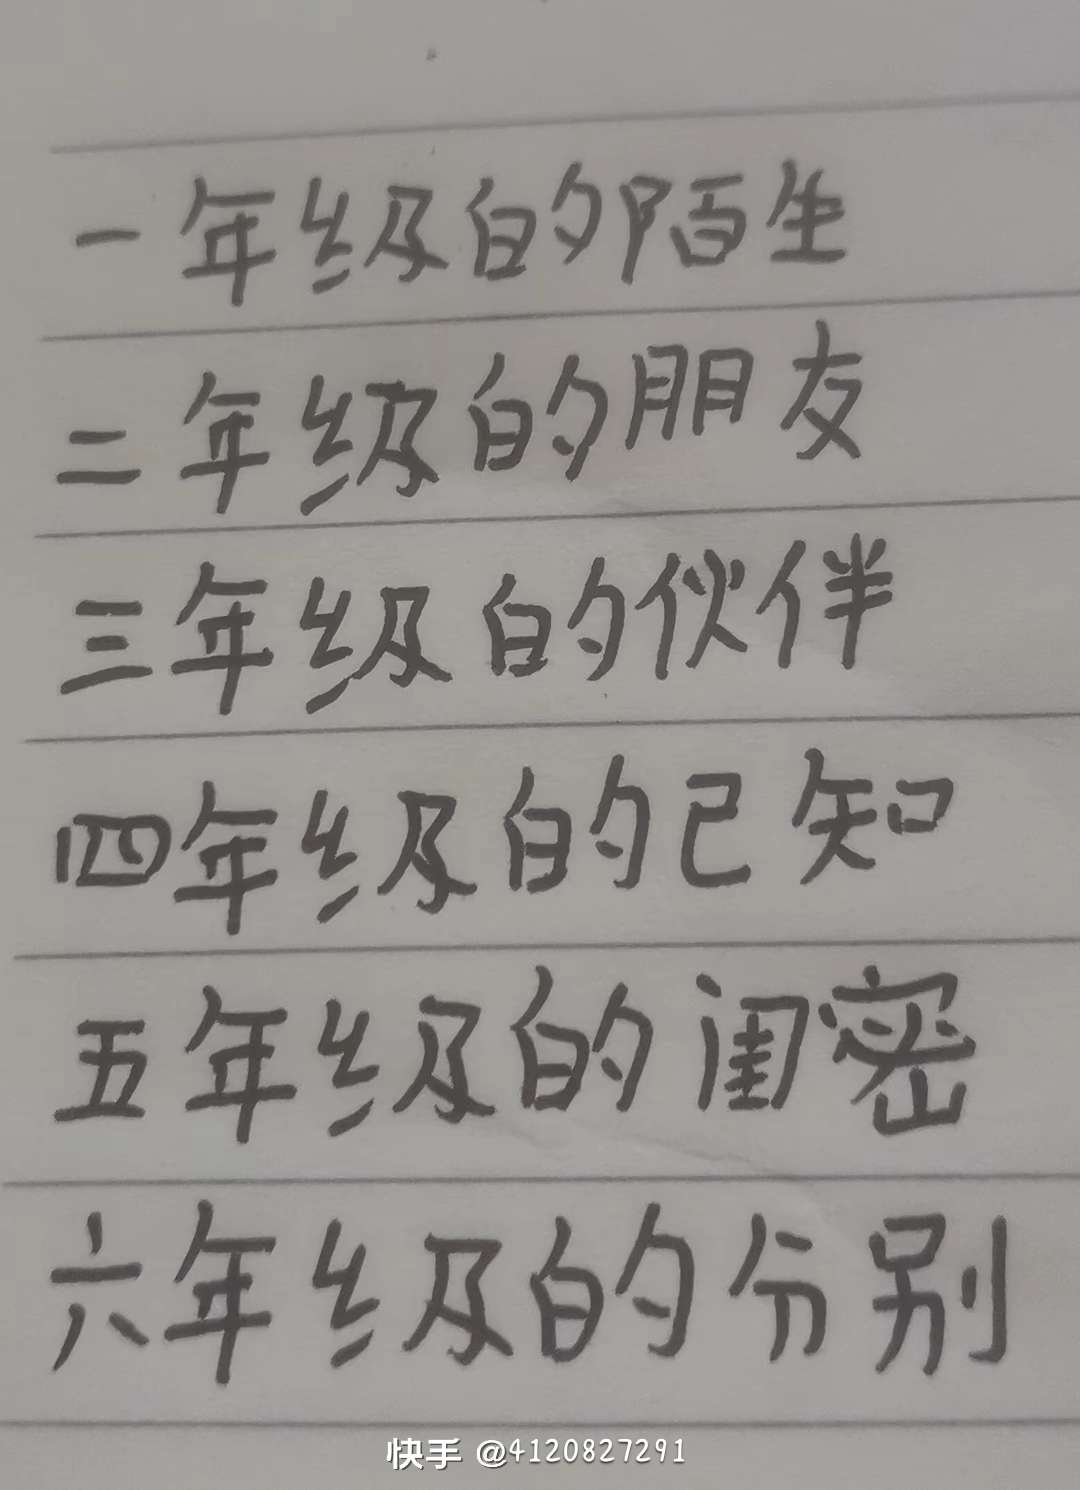 一年级的陌生
二年级的朋友
三年级的伙伴
四年级的已知
五年级的闺密
六年级的分别
快手 @4120827291